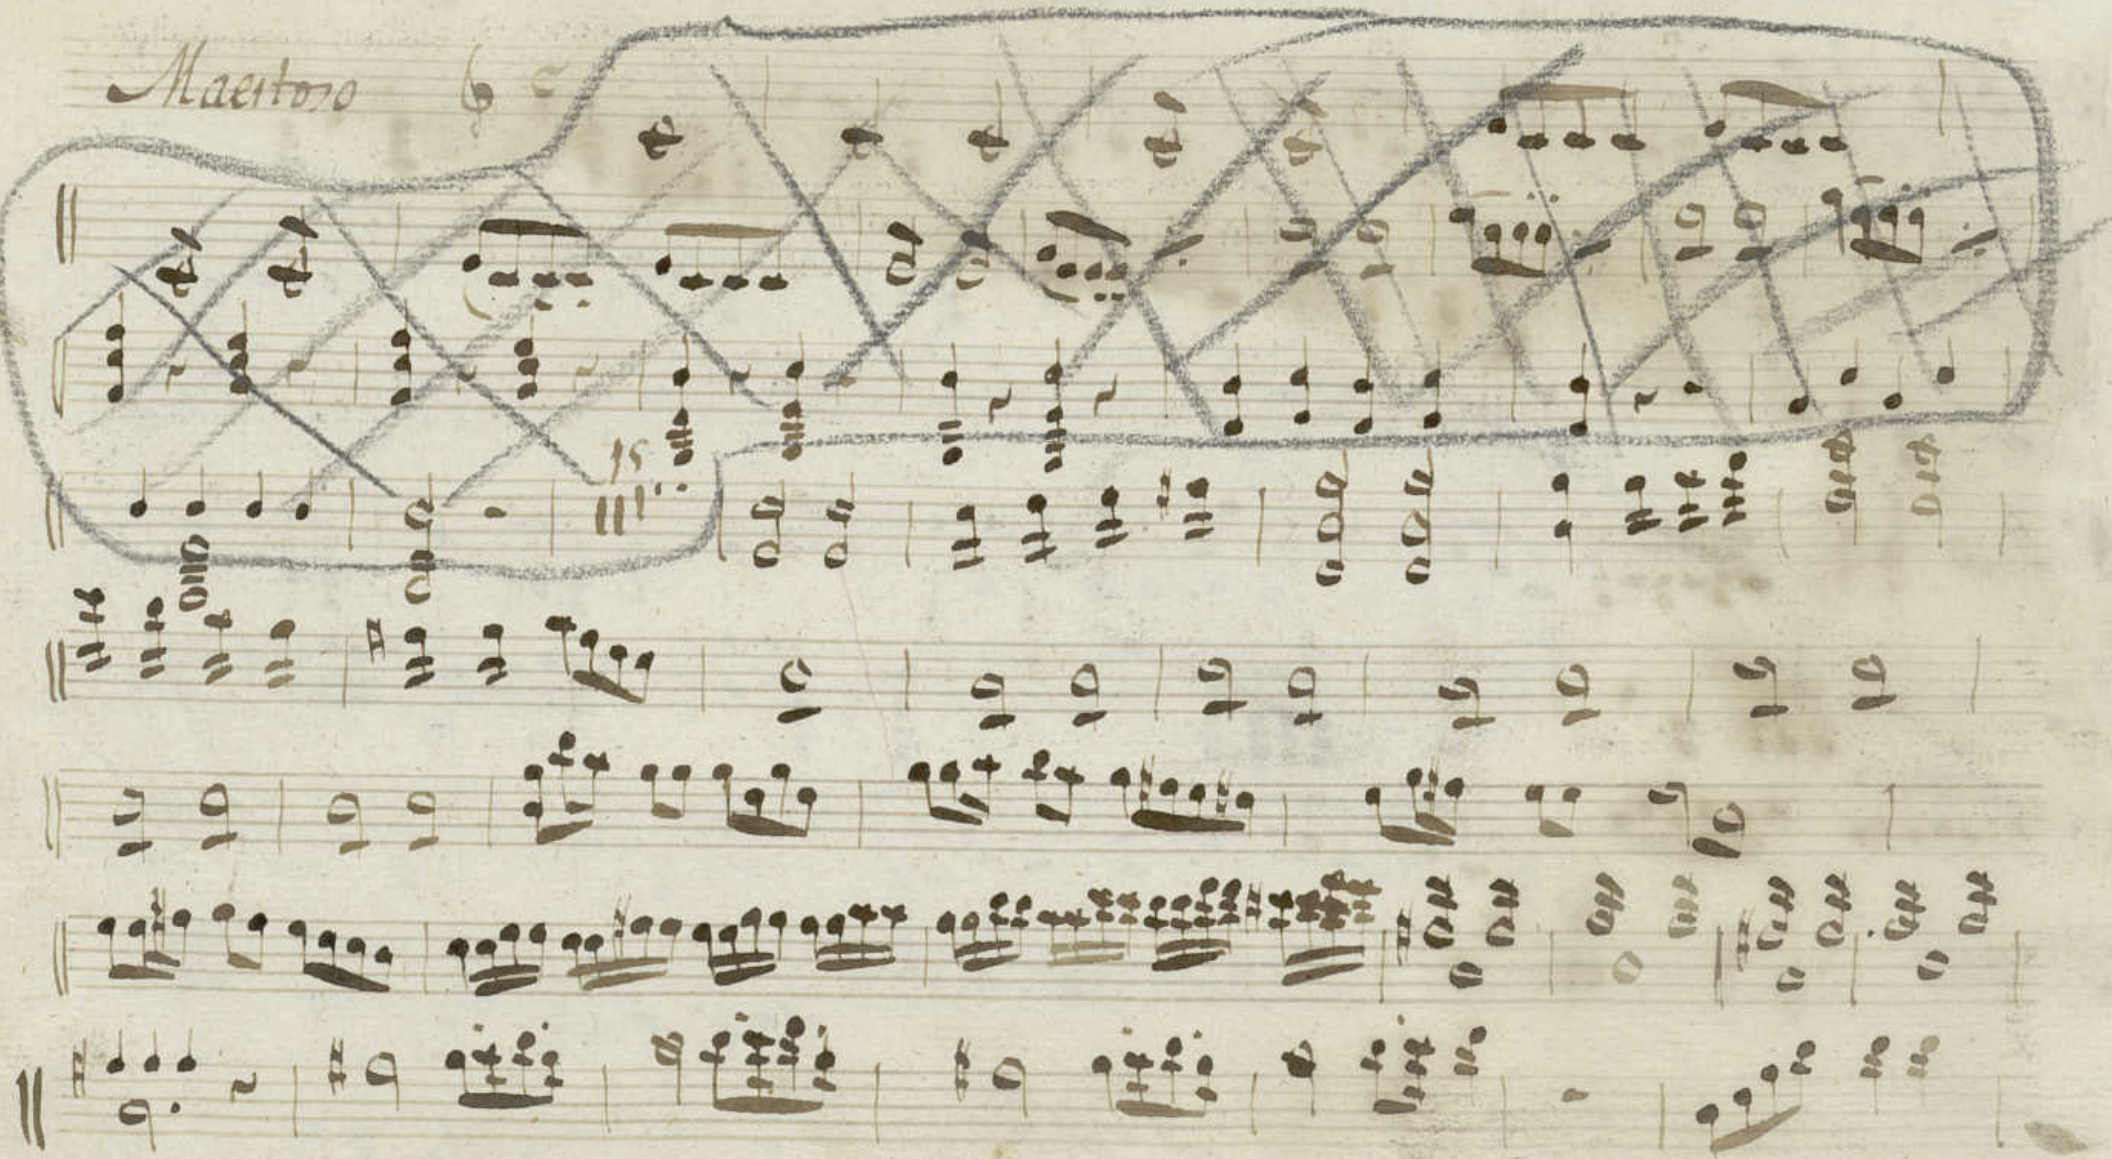 Maestoso
15